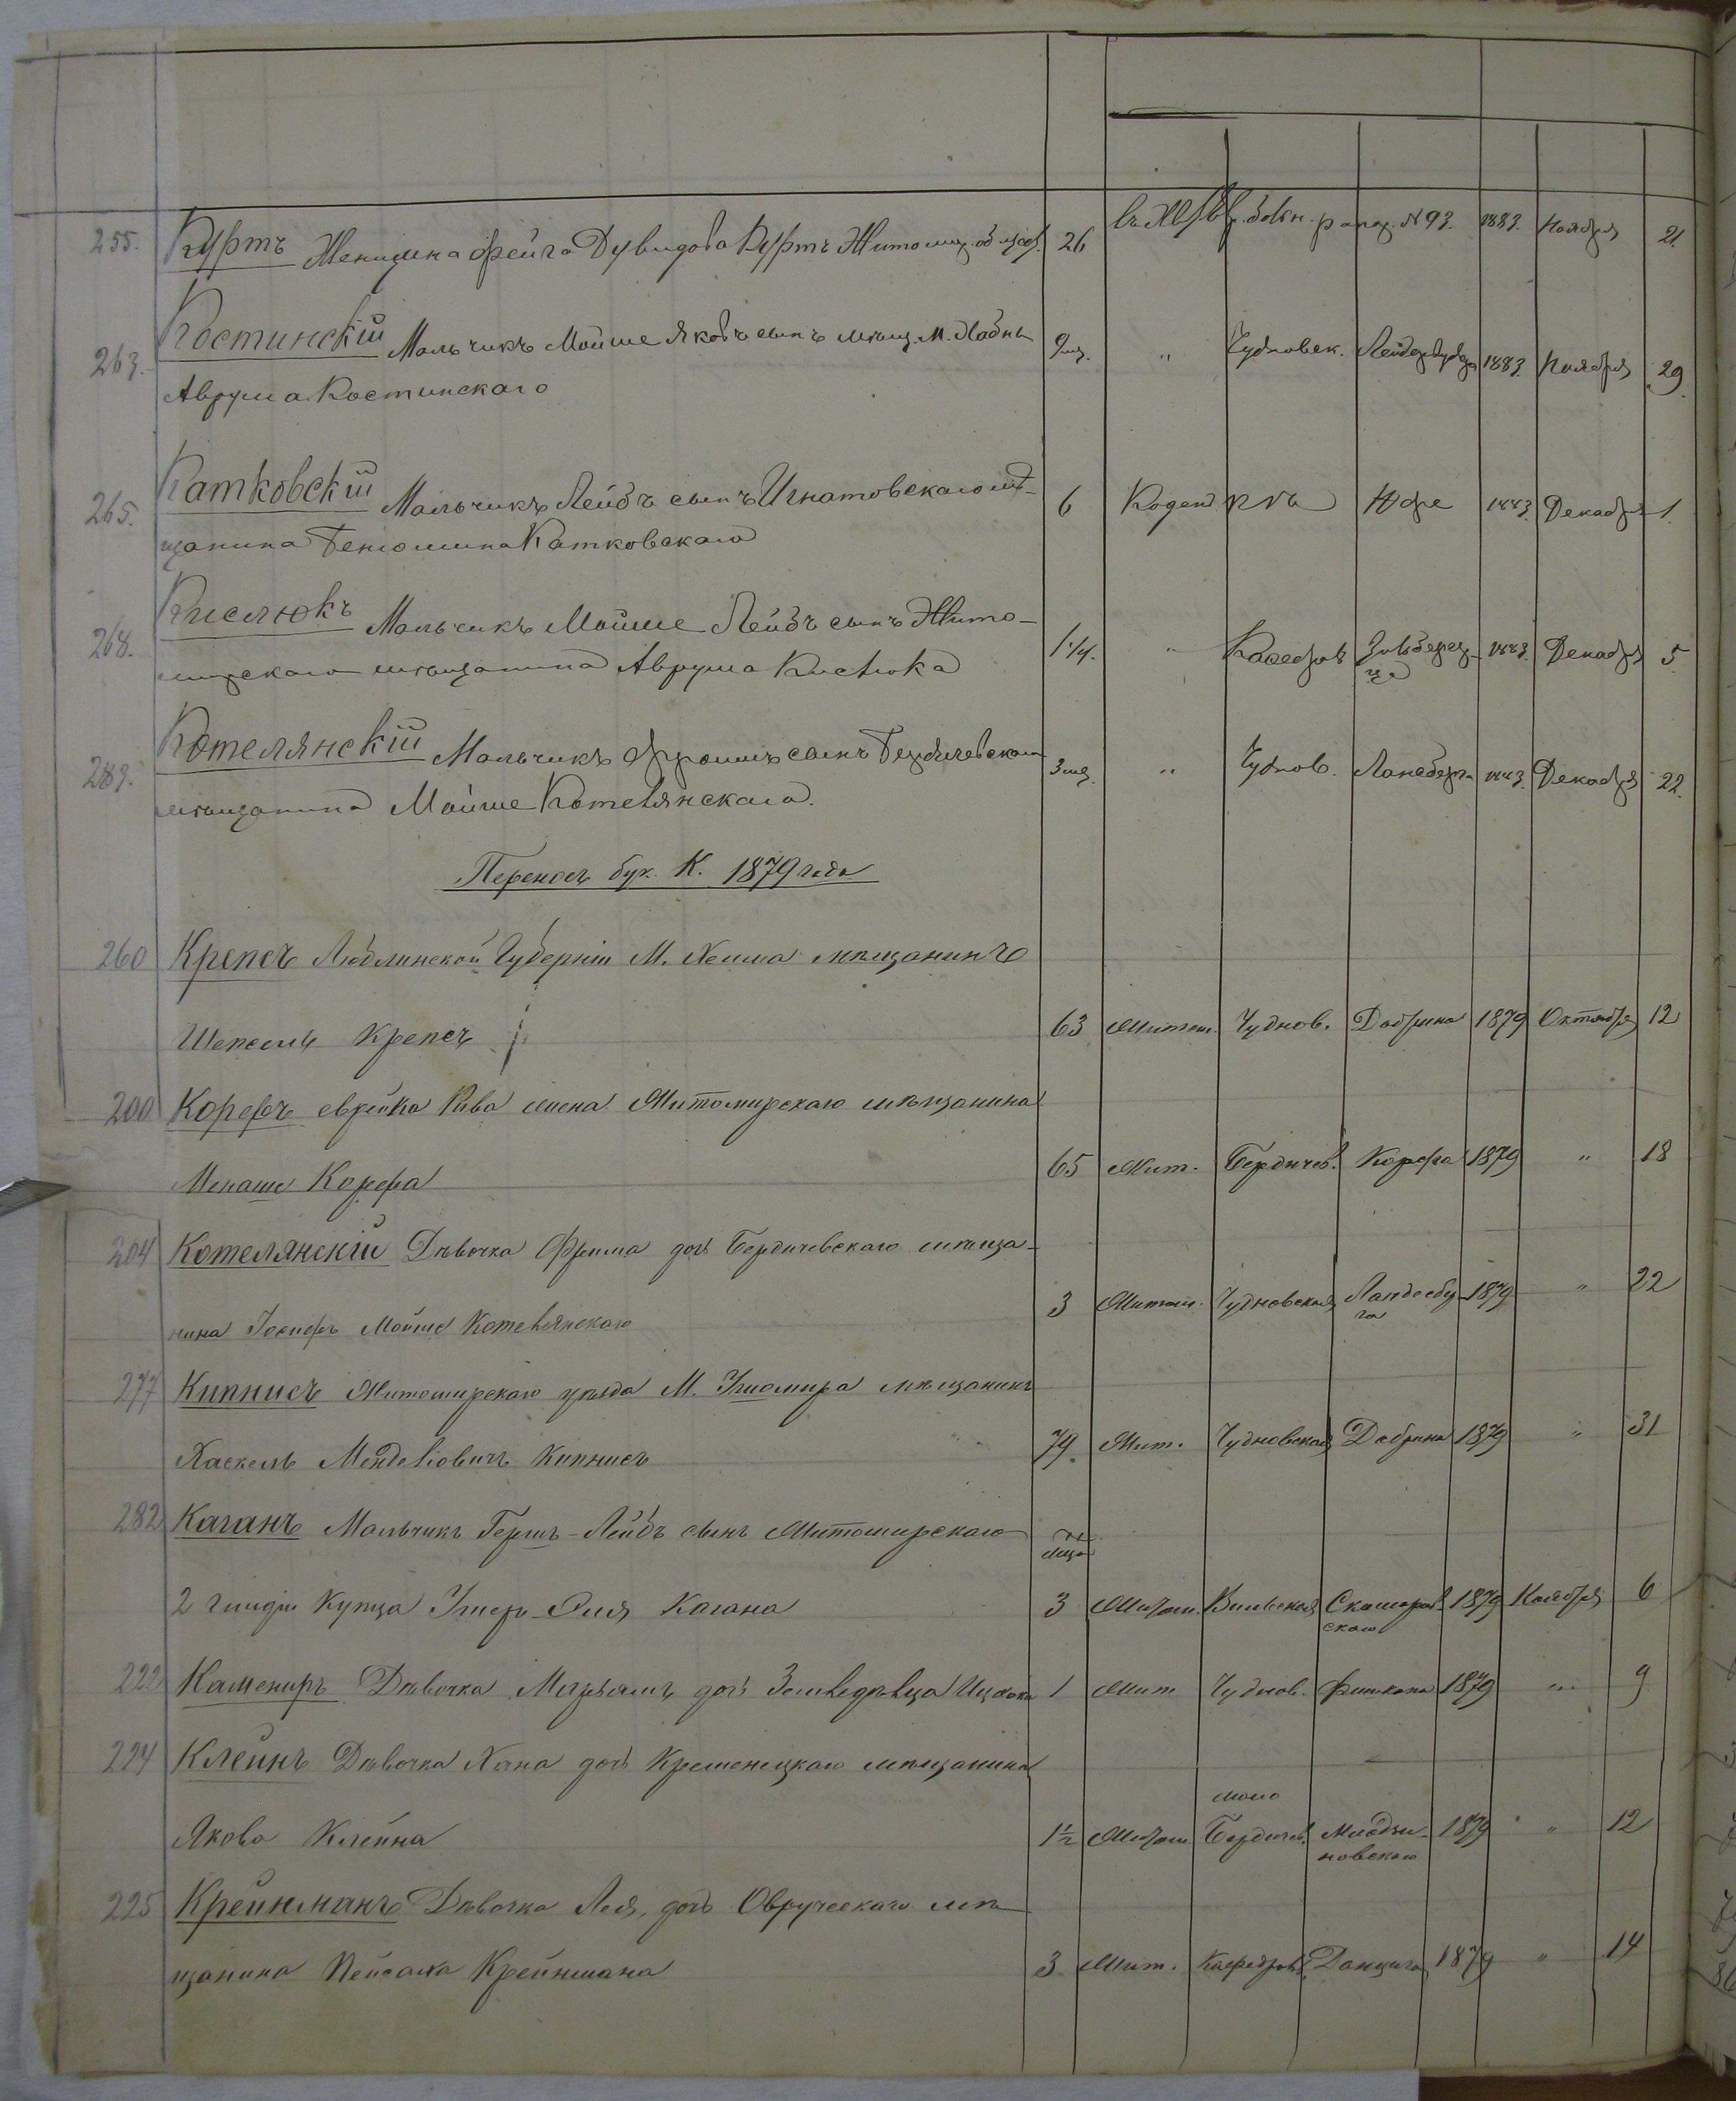 255. Куртъ Женщина Фейга Дувидова Куртъ Житомир. 26 1883. Ноября 21
263. Костинскій Мальчикъ Мойше Яковъ сынъ мѣщ. м. 9 мц. " Чудновск. 1883. Ноября 29.
Аврума Костинскаго
265. Катковскій Мальчикъ Лейбъ сынъ Игнатовскаго мѣ-
щанина Беніомина Катковскаго 6 1883. Декабря 1.
268. Кислюкъ Мальчикъ Мойше Лейбъ сынъ Жито-
мирскаго мѣщанина Аврума Кислюка 1 1/4. " 1883. Декабря 5
289. Котелянскій Мальчикъ Фроимъ сынъ Бердичевскаго 3 мц. " Чуднов. Лансберга 1883. Декабря 22.
мѣщанина Мойше Котелянскаго.
Переносъ бук. К. 1879 года
260 Крепсъ Люблинской Губерніи М. Хелма мѣщанинъ
Шепсель Крепсъ 63 Житом. Чуднов. Добрина 1879 Октября 12
200 Корфъ еврейка Рива жена Житомирскаго мѣщанина
Менаше Корфа 65 Жит. Бердичев. Корфа 1879 " 18
204 Котелянскій Дѣвочка Фрима дочь Бердичевскаго мѣща-
нина Іосифъ Мойше Котелянскаго 3 Житом. Чудновская 1879 " 22
277 Кипнисъ Житомирскаго уѣзда М. мѣщанинъ
Хаскель Менделіовичъ Кипнисъ 79. Жит. Чудновская Добрина 1879 " 31
282 Каганъ Мальчикъ Гершъ-Лейбъ сынъ Житомирскаго
2 гильдіи Купца Кагана 3 Житом. Вильская Скоморов-
скаго 1879 Ноября 6
222 Камениръ Дѣвочка Марьямъ дочь Земледѣльца Ицхока 1 Жит Чуднов. Фишмана 1879 " 9
224 Клейнъ Дѣвочка Хана дочь Кременецкаго мѣщанина
Якова Клейна 1 1/2 Житом. мало Бердичев. 1879 " 12
225 Крейнманъ Дѣвочка Лея, дочь Овручскаго мѣ-
щанина Пейсаха Крейнмана 3 Жит. Кафедров. Данцига 1879 " 14